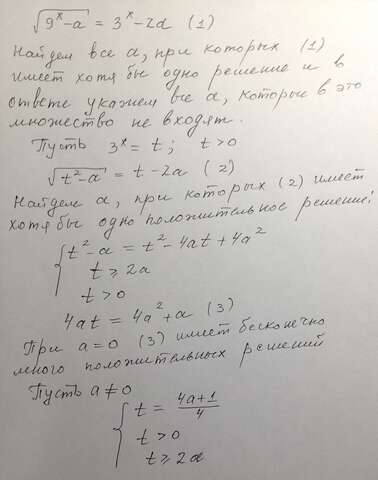 √(9^x - a) = 3^x - 2a (1)
Найдем все a, при которых (1)
имеет хотя бы одно решение и в
ответе укажем все a, которые в это
множество не входят.
Пусть 3^x = t; t > 0
√(t² - a) = t - 2a (2)
Найдем a, при которых (2) имеет
хотя бы одно положительное решение:
{ t² - a = t² - 4at + 4a²
t ≥ 2a
t > 0
4at = 4a² + a (3)
При a = 0 (3) имеет бесконечно
много положительных решений
Пусть a ≠ 0
{ t = (4a+1)/4
t > 0
t ≥ 2a